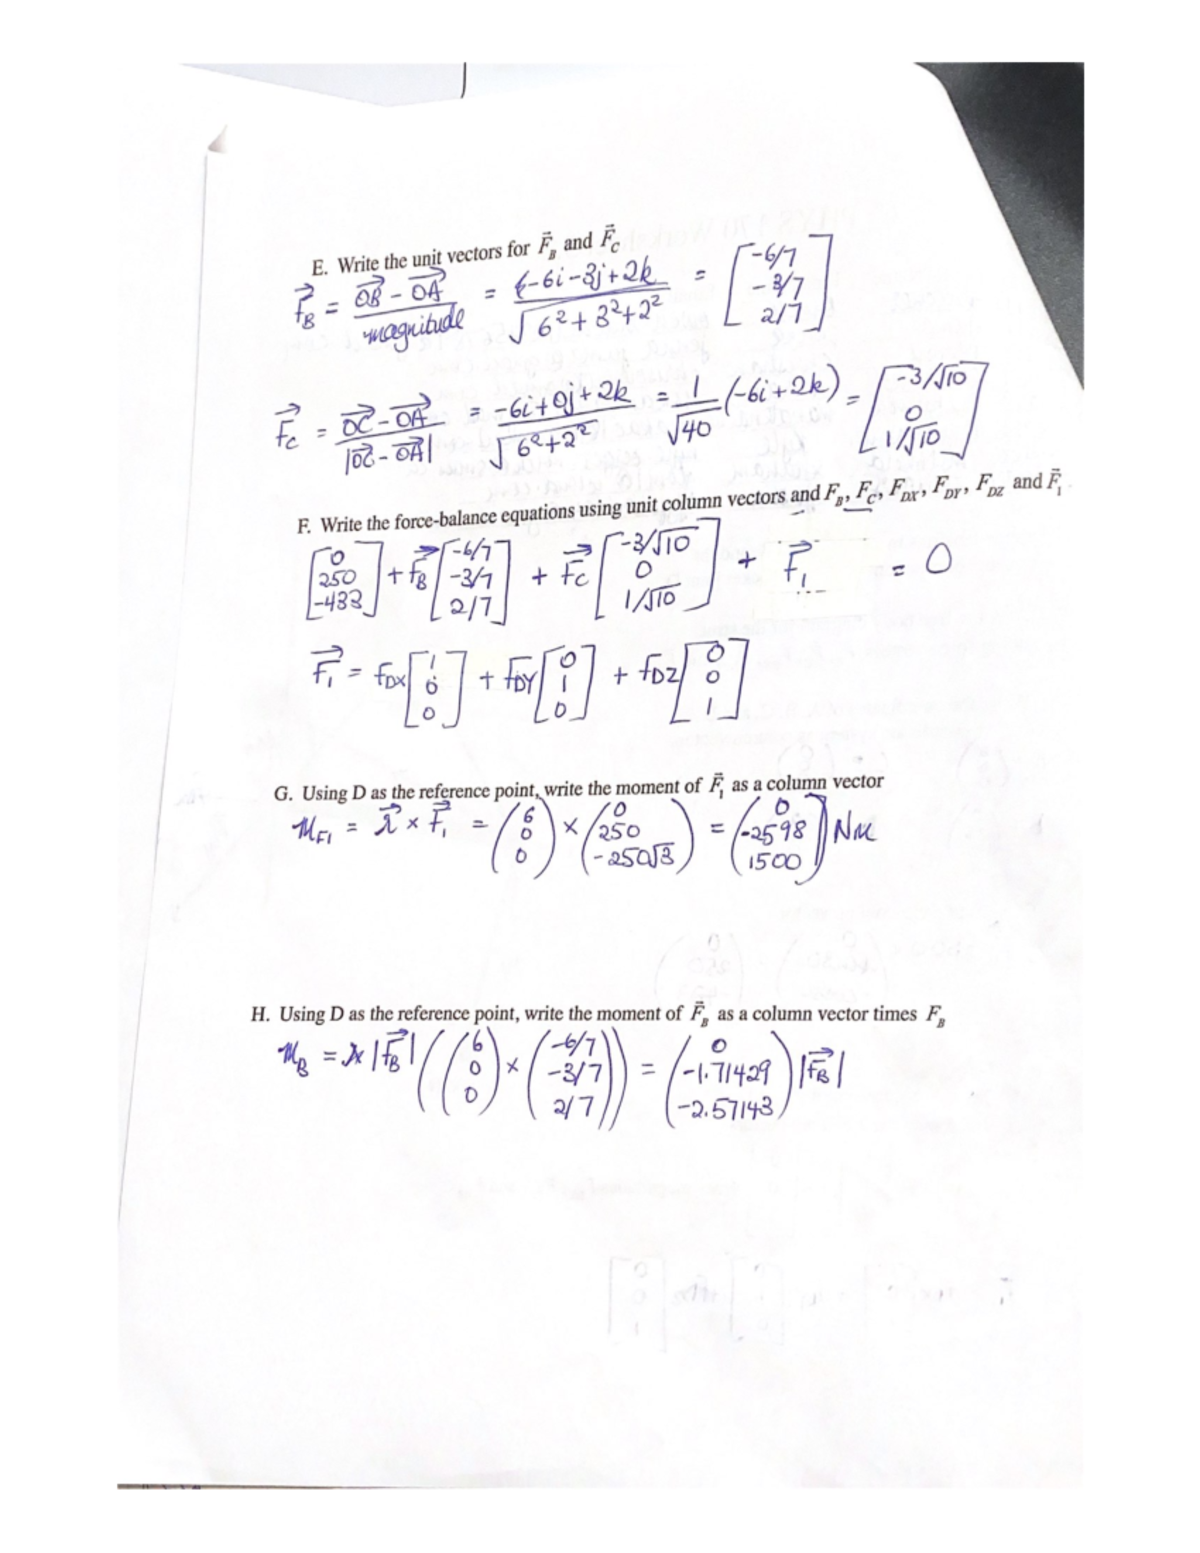 E. Write the unit vectors for F⃗_B and F⃗_C
f⃗_B = (OB⃗ - OA⃗)/magnitude = (-6i-3j+2k)/√(6²+3²+2²) = [-6/7, -3/7, 2/7]
f⃗_C = (OC⃗ - OA⃗)/|OC⃗ - OA⃗| = (-6i+0j+2k)/√(6²+2²) = 1/√40 (-6i+2k) = [-3/√10, 0, 1/√10]
F. Write the force-balance equations using unit column vectors and F_B, F_C, F_DX, F_DY, F_DZ and F⃗_1
[0, 250, -433] + f⃗_B [-6/7, -3/7, 2/7] + f⃗_C [-3/√10, 0, 1/√10] + F⃗_1 = 0
F⃗_1 = f_DX [1, 0, 0] + f_DY [0, 1, 0] + f_DZ [0, 0, 1]
G. Using D as the reference point, write the moment of F⃗_1 as a column vector
M_F1 = r⃗ × F⃗_1 = (6, 0, 0) × (0, 250, -250√3) = (0, -2598, 1500) Nm
H. Using D as the reference point, write the moment of F⃗_B as a column vector times F_B
M_B = r×|f⃗_B| ((6, 0, 0) × (-6/7, -3/7, 2/7)) = (0, -1.71429, -2.57143) |f⃗_B|